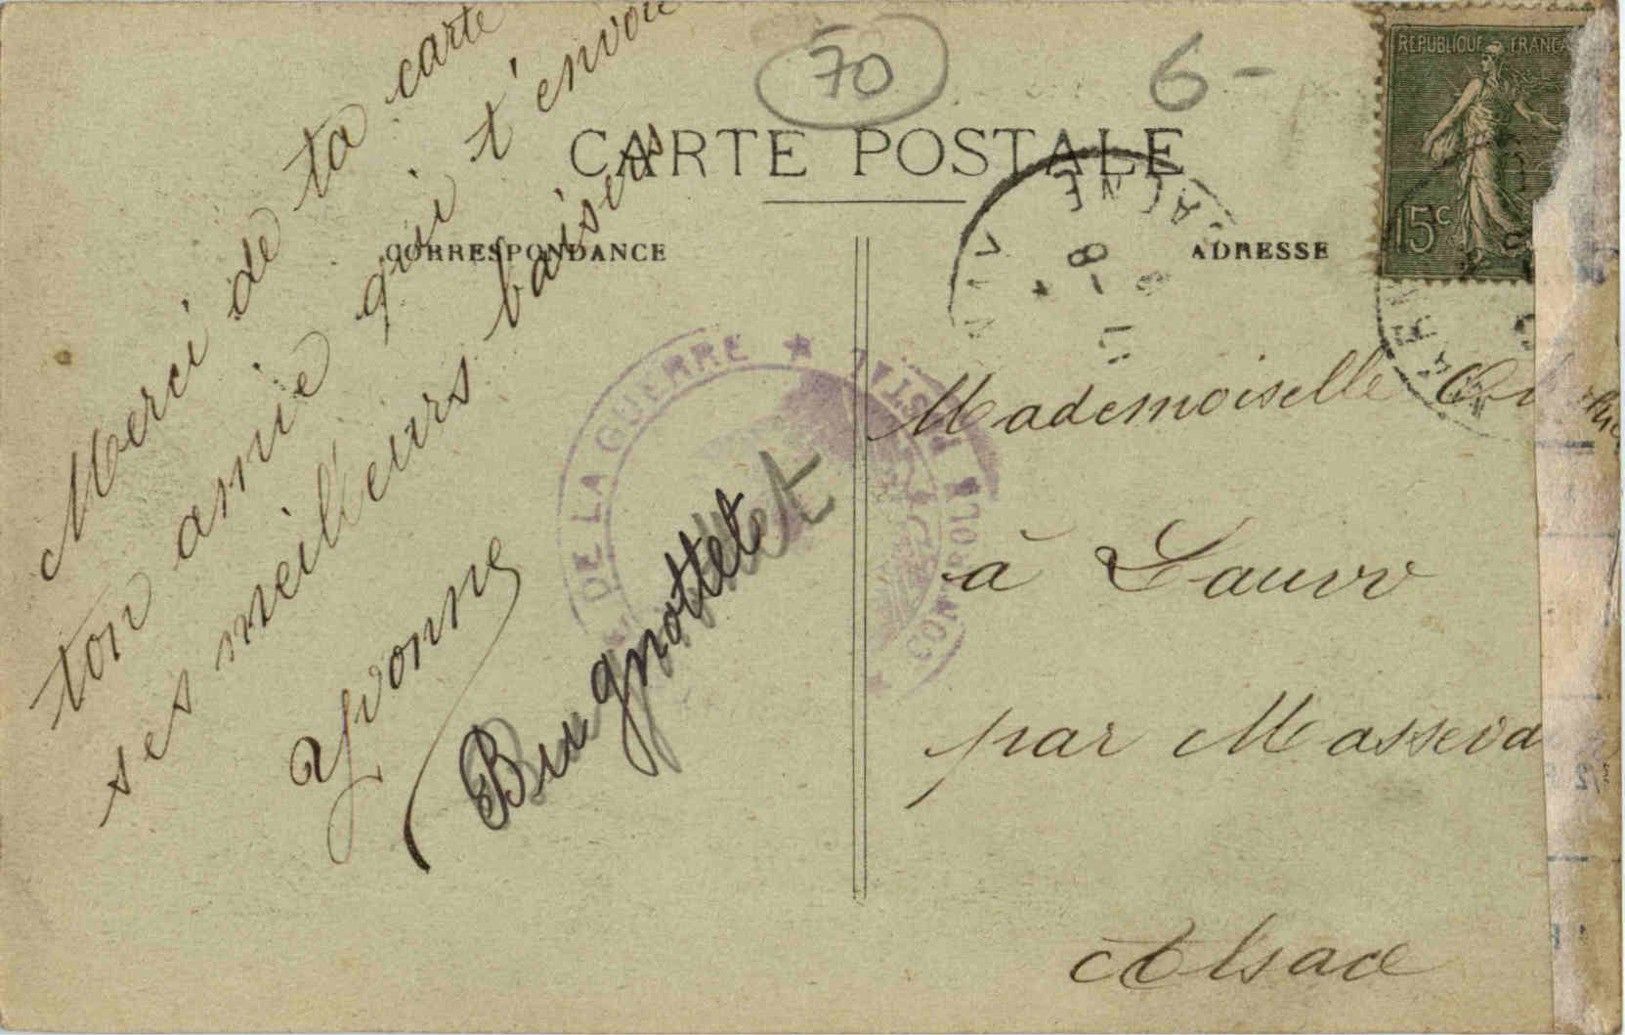 70
6-
CARTE POSTALE
RÉPUBLIQUE FRANÇA
15c
CORRESPONDANCE
ADRESSE
Merci de ta carte
ton amie qui t'envoie
ses meilleurs baisers
Yvonne
Brugnottet
DE LA GUERRE ★
CONTROLE POSTAL
Mademoiselle
à Lauw
par Masseva
Alsace